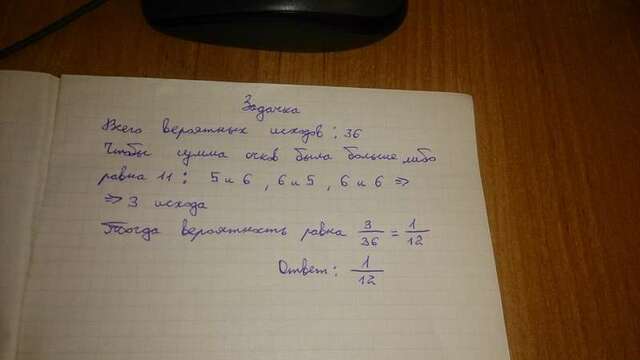 Задачка
Всего вероятных исходов: 36
Чтобы сумма очков была больше либо
равна 11: 5 и 6, 6 и 5, 6 и 6 =>
=> 3 исхода
Тогда вероятность равна 3/36 = 1/12
Ответ: 1/12